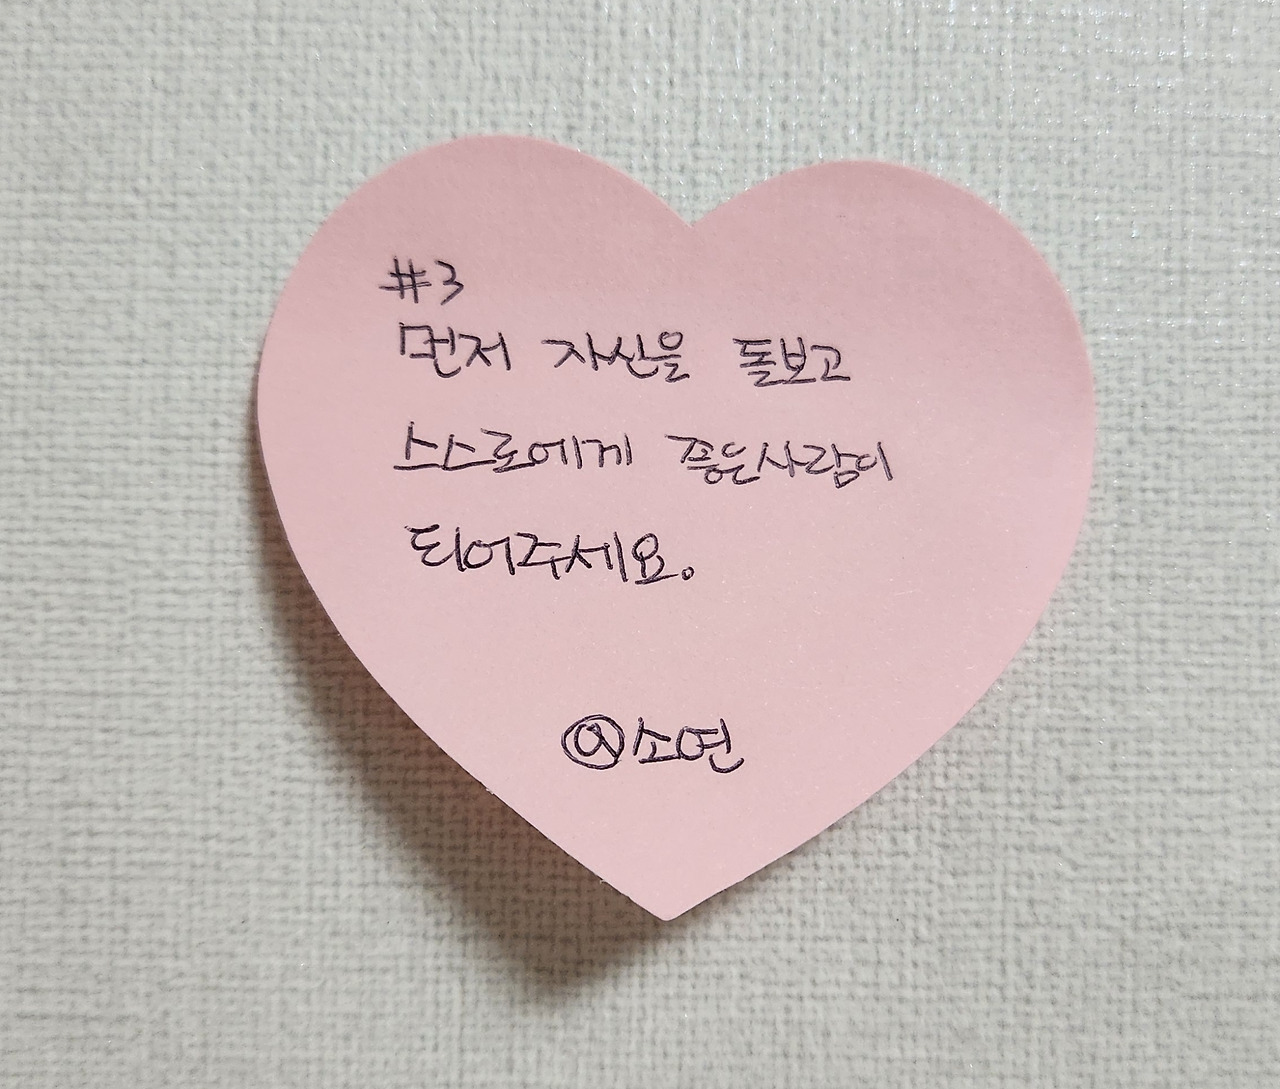 #3
먼저 자신을 돌보고
스스로에게 좋은사람이
되어주세요.
소연